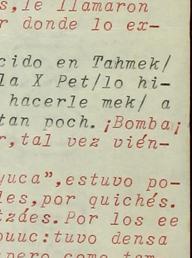 s, le llamaron
r donde lo ex-
cido en Tahmek/
la X Pet/lo hi-
hacerle mek/ a
tan poch. ¡Bomba¡
r, tal vez vién-
yuca", estuvo po-
les, por quichés.
tzáes. Por los ee
puuc: tuvo densa
pero como tam